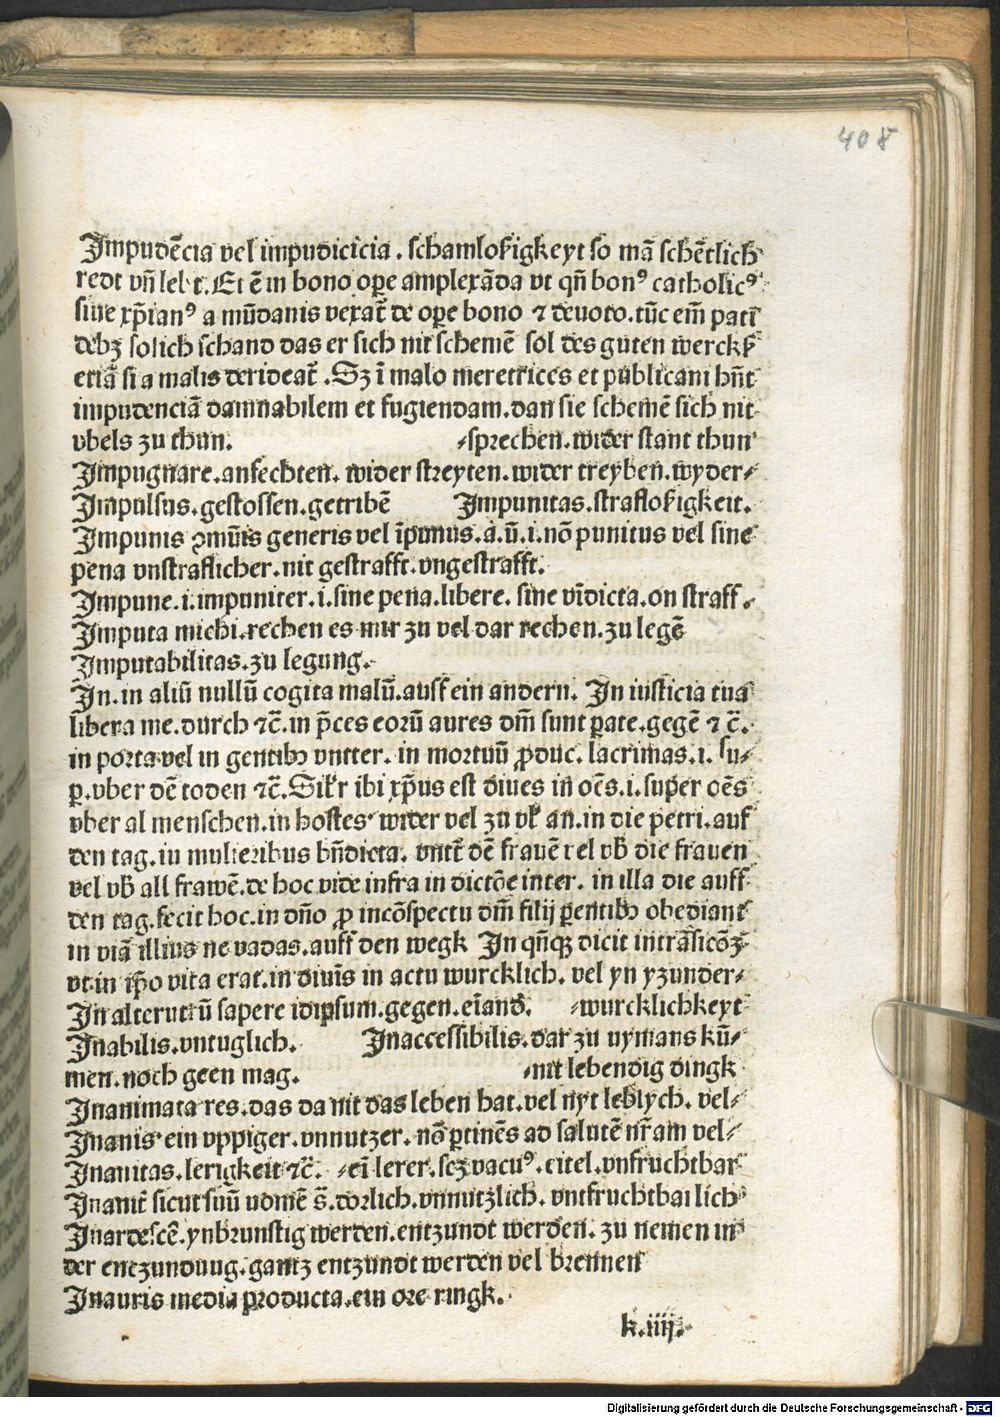 408
Impudēcia vel impudicicia . schamlosigkeyt so mā schētlich
redt vn̄ lebt. Et ē in bono oꝑe amplexāda vt qn̄ bonꝰ catholicꝰ
siue xp̄ianꝰ a mūdanis vexat̄ de oꝑe bono ⁊ deuoto. tūc em̄ pati
debꝫ solich schand das er sich nit schemē sol des guten werckß
etiā si a malis derideat̄ . Sꝫ ī malo meretrices et publicani hn̄t
impudenciā damnabilem et fugiendam. dan sie schemē sich nit
vbels zu thun. ⸗sprechen. wider stant thun
Impugnare. anfechten. wider streyten. wider treyben. wyder⸗
Impulsus. gestossen. getribē Impunitas. straflosigkeit.
Impunis ꝯmūis generis vel īpunus. a. ū. i. nō punitus vel sine
pena vnstraflicher. nit gestrafft. vngestrafft.
Impune. i. impuniter. i. sine pena. libere. sine vīdicta. on straff.
Imputa michi. rechen es mir zu vel dar rechen. zu legē
Imputabilitas. zu legung.
In. in aliū nullū cogita malū. auff ein andern. In iusticia tua
libera me. durch ⁊c̄. in p̄ces eorū aures dm̄ sunt ꝑate. gegē ⁊ c̄.
in porta vel in gentibꝫ vntter. in mortuū ꝓduc. lacrimas. i. su⸗
ꝑ. vber dē toden ⁊c̄. Silr ibi xp̄us est diues in oēs. i. super oēs
vber al menschen. in hostes wider vel zu vb̄ an. in die petri. auf
den tag. in mulieribus bn̄dicta. vntt̄ dē frauē vel vb̄ die frauen
vel vb̄ all frawē. de hoc vide infra in dictōe inter. in illa die auff
den tag. fecit hoc. in dn̄o ꝓ incōspectu dm̄ filij ꝑentibꝫ obediant
in viā illius ne vadas. auff den wegk In qn̄qꝫ dicit intrāsicōꝫ
vt. in ip̄o vita erat. in diuīs in actu wurcklich. vel yn yzunder⸗
In alterutrū sapere idipsum. gegen. eīand. ⸗wurcklichkeyt
Inabilis. vntuglich. Inaccessibilis. dar zu nymans kū⸗
men. noch geen mag. ⸗nit lebendig dingk
Inanimata res. das da nit das leben hat. vel nyt leblych. vel⸗
Inanis ein vppiger. vnnutzer. nō ꝑtinēs ad salutē nr̄am vel⸗
Inanitas. lerigkeit ⁊c̄. ⸗eī lerer. scꝫ vacuꝰ. eitel. vnfruchtbar
Inanit̄ sicut suū nomē s̄. torlich. vnnutzlich. vntfruchtbarlich
Inardescē. ynbrunstig werden. entzundt werden. zu nemen in
der entzundung. gantz entzundt werden vel brennen
Inauris media producta. ein ore ringk.
k. iiij.
Digitalisierung gefördert durch die Deutsche Forschungsgemeinschaft - DFG